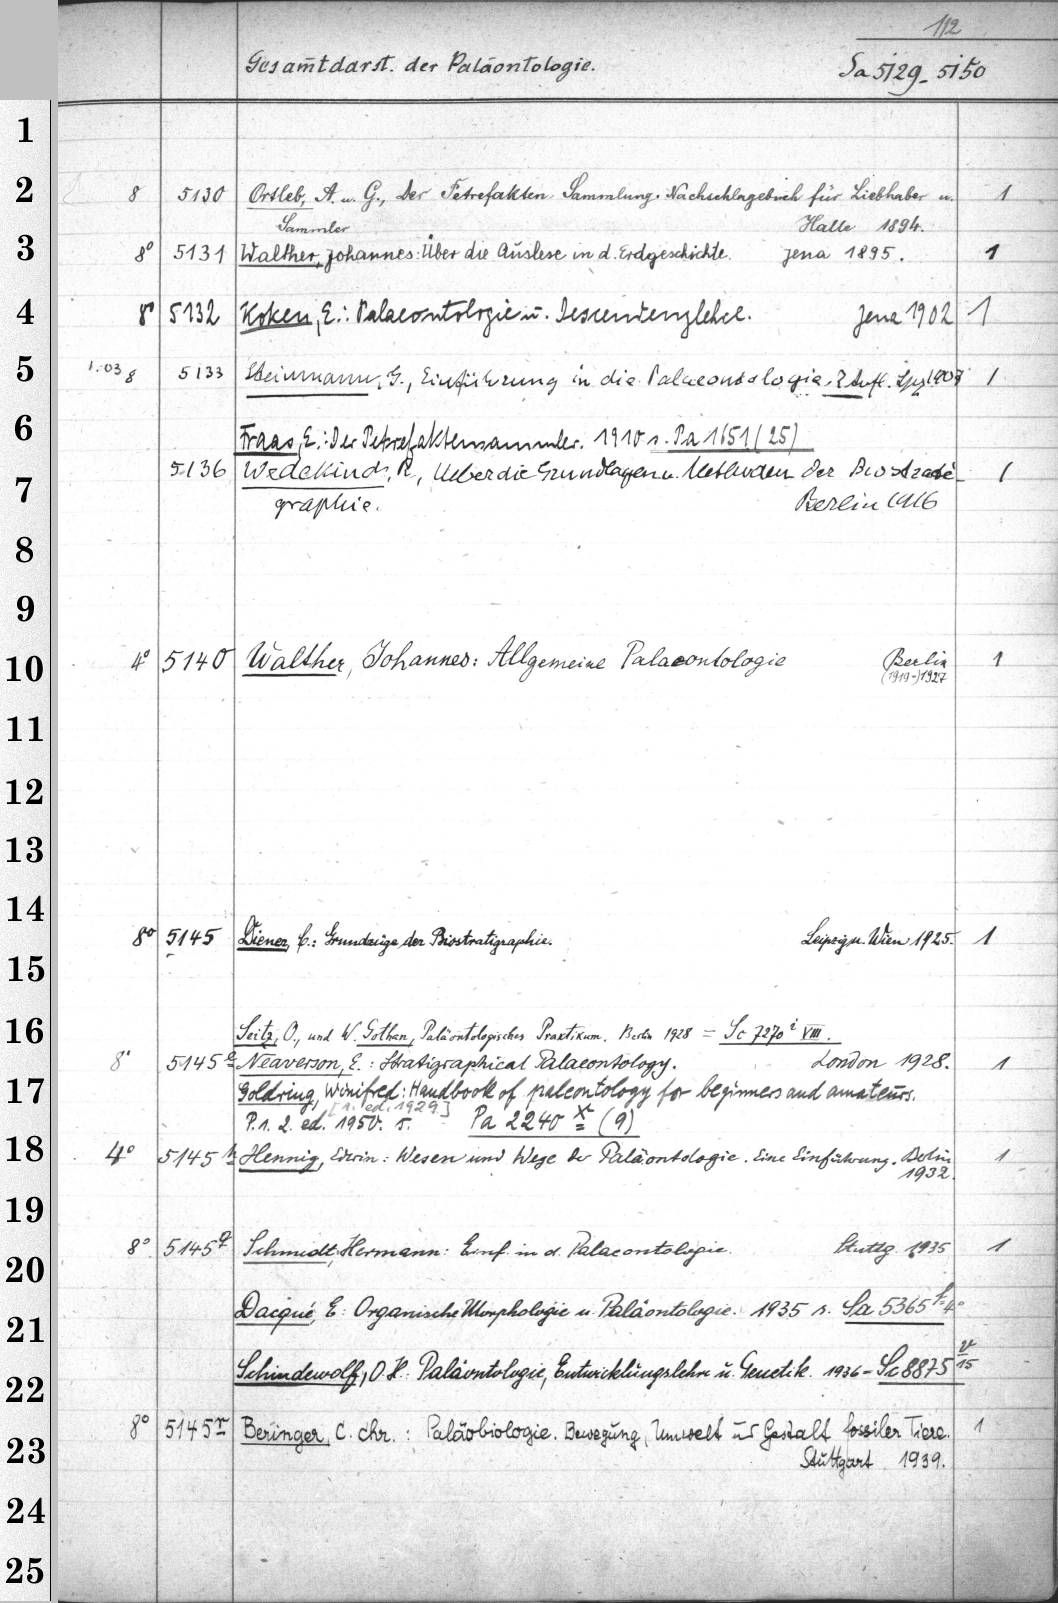 112
Gesamtdarst. der Paläontologie. Sa 5129-5150
1
2 8 5130 Ortleb, A. u. G., Der Petrefakten Sammlung. Nachschlagebuch für Liebhaber u. 1
Sammler Halle 1894.
3 8° 5131 Walther, Johannes: Über die Auslese in d. Erdgeschichte. Jena 1895. 1
4 8° 5132 Koken, E.: Palaeontologie u. Descendenzlehre. Jena 1902 1
5 1.-03 8 5133 Steinmann, G., Einführung in die Palaeontologie. 2. Aufl. Lpz 1907 1
6 Fraas, E.: Der Petrefaktensammler. 1910 s. Pa 1651 (25)
7 5136 Wedekind, R., Ueber die Grundlagen u. Methoden der Biostrati- 1
graphie. Berlin 1916
8
9
10 4° 5140 Walther, Johannes: Allgemeine Palaeontologie Berlin 1
(1919-)1927
11
12
13
14
8° 5145 Diener, C.: Grundzüge der Biostratigraphie. Leipzig u. Wien 1925. 1
15
16 Seitz, O., und W. Gothan, Paläontologisches Praktikum. Berlin 1928 = Sc 7270 i VIII.
8° 5145 e Neaverson, E.: Stratigraphical Palaeontology. London 1928. 1
17 Goldring, Winifred: Handbook of paleontology for beginners and amateurs.
[1. ed. 1929]
P. 1. 2. ed. 1950. s. Pa 2240 x (9)
18 4° 5145 h Hennig, Edwin: Wesen und Wege der Paläontologie. Eine Einführung. Berlin 1
1932.
19
8° 5145 q Schmidt, Hermann: Einf. in d. Palaeontologie. Stuttg. 1935 1
20
21 Dacqué, E: Organische Morphologie u. Paläontologie. 1935 s. Sa 5365 f 4°
22 Schindewolf, O. H.: Paläontologie, Entwicklungslehre u. Genetik. 1936 = Sc 8875 v/15
23 8° 5145 r Beringer, C. Chr.: Paläobiologie. Bewegung, Umwelt und Gestalt fossiler Tiere. 1
Stuttgart 1939.
24
25